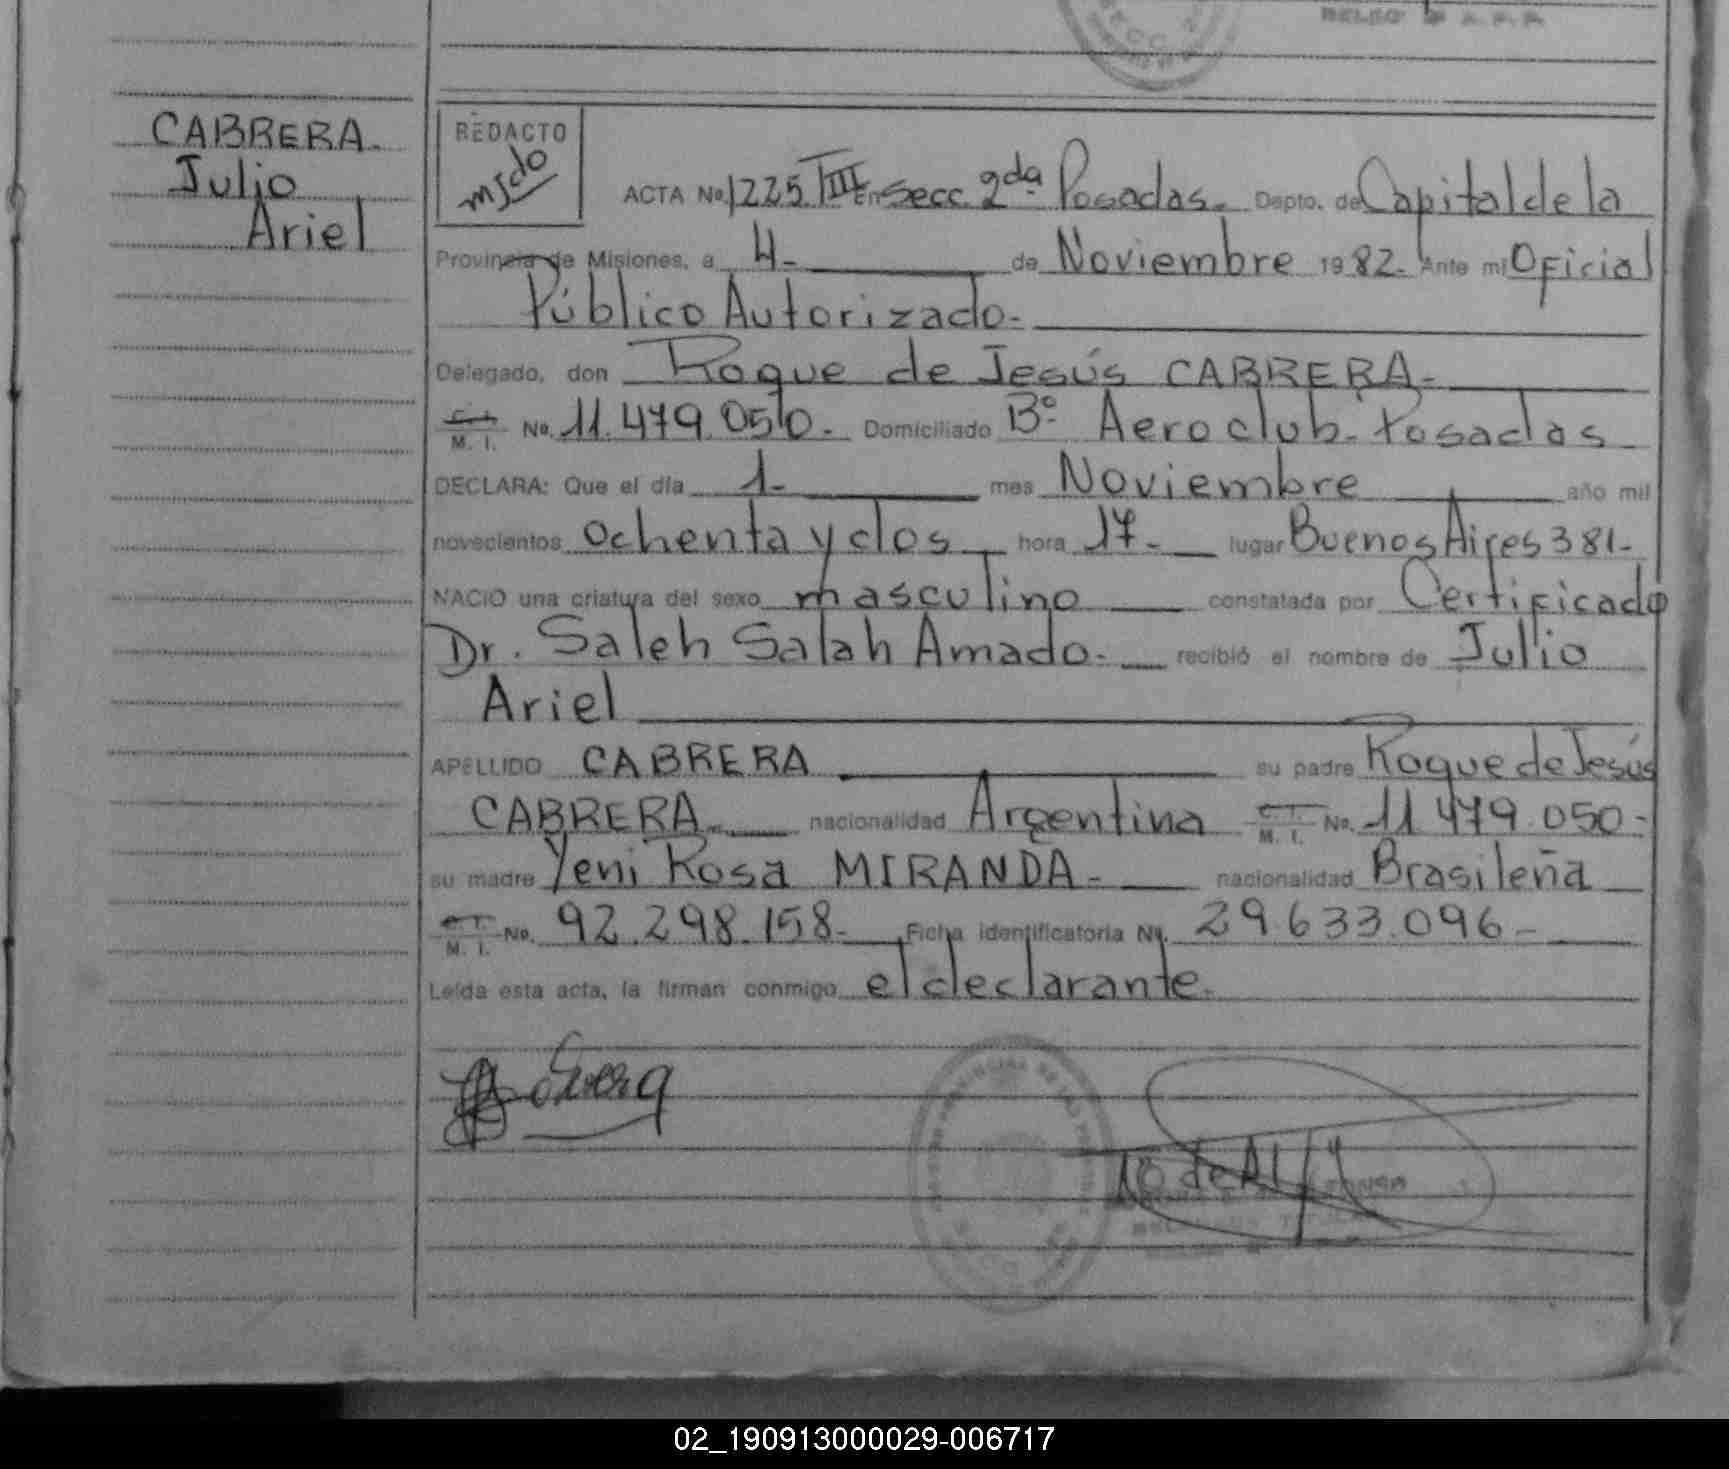 CABRERA.
Julio
Ariel
REDACTO
ACTA No. 1225 TIII En Secc. 2da Posadas. Depto. de Capital de la
Provincia de Misiones, a 4- de Noviembre 1982. Ante mi Oficial
Público Autorizado.
Delegado, don Roque de Jesús CABRERA.
C. I. M. I. No. 11.479.050. Domiciliado Bº. Aeroclub. Posadas
DECLARA: Que el día 1- mes Noviembre año mil
novecientos ochenta y dos hora 17- lugar Buenos Aires 381-
NACIO una criatura del sexo masculino constatada por Certificado
Dr. Saleh Salah Amado. recibió el nombre de Julio
Ariel
APELLIDO CABRERA su padre Roque de Jesús
CABRERA. nacionalidad Argentina C. I. M. I. No. 11.479.050-
su madre Yeni Rosa MIRANDA- nacionalidad Brasileña
C. I. M. I. No. 92.298.158- Ficha identificatoria No. 29.633.096-
Leída esta acta, la firman conmigo el declarante.
02_190913000029-006717